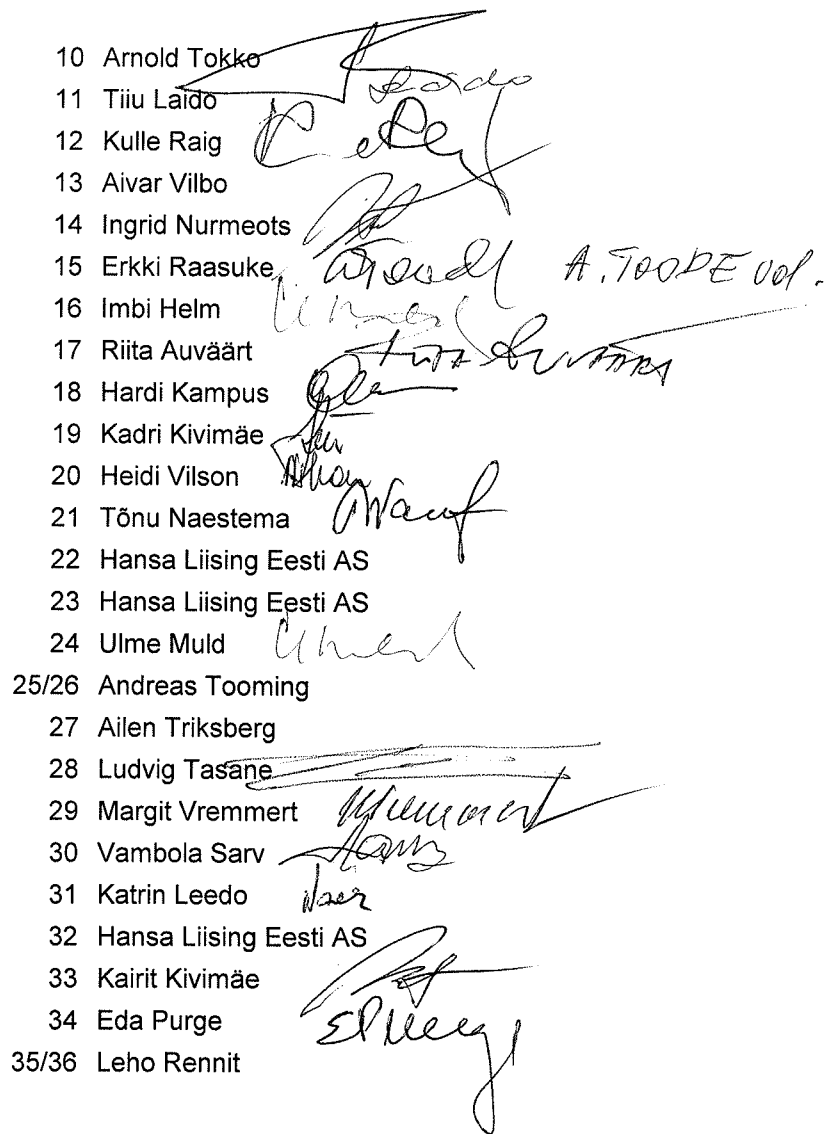 10 Arnold Tokko
11 Tiiu Laido
12 Kulle Raig
13 Aivar Vilbo
14 Ingrid Nurmeots
15 Erkki Raasuke A. TOODE vol.
16 Imbi Helm
17 Riita Auväärt
18 Hardi Kampus
19 Kadri Kivimäe
20 Heidi Vilson
21 Tõnu Naestema
22 Hansa Liising Eesti AS
23 Hansa Liising Eesti AS
24 Ulme Muld
25/26 Andreas Tooming
27 Ailen Triksberg
28 Ludvig Tasane
29 Margit Vremmert
30 Vambola Sarv
31 Katrin Leedo
32 Hansa Liising Eesti AS
33 Kairit Kivimäe
34 Eda Purge
35/36 Leho Rennit